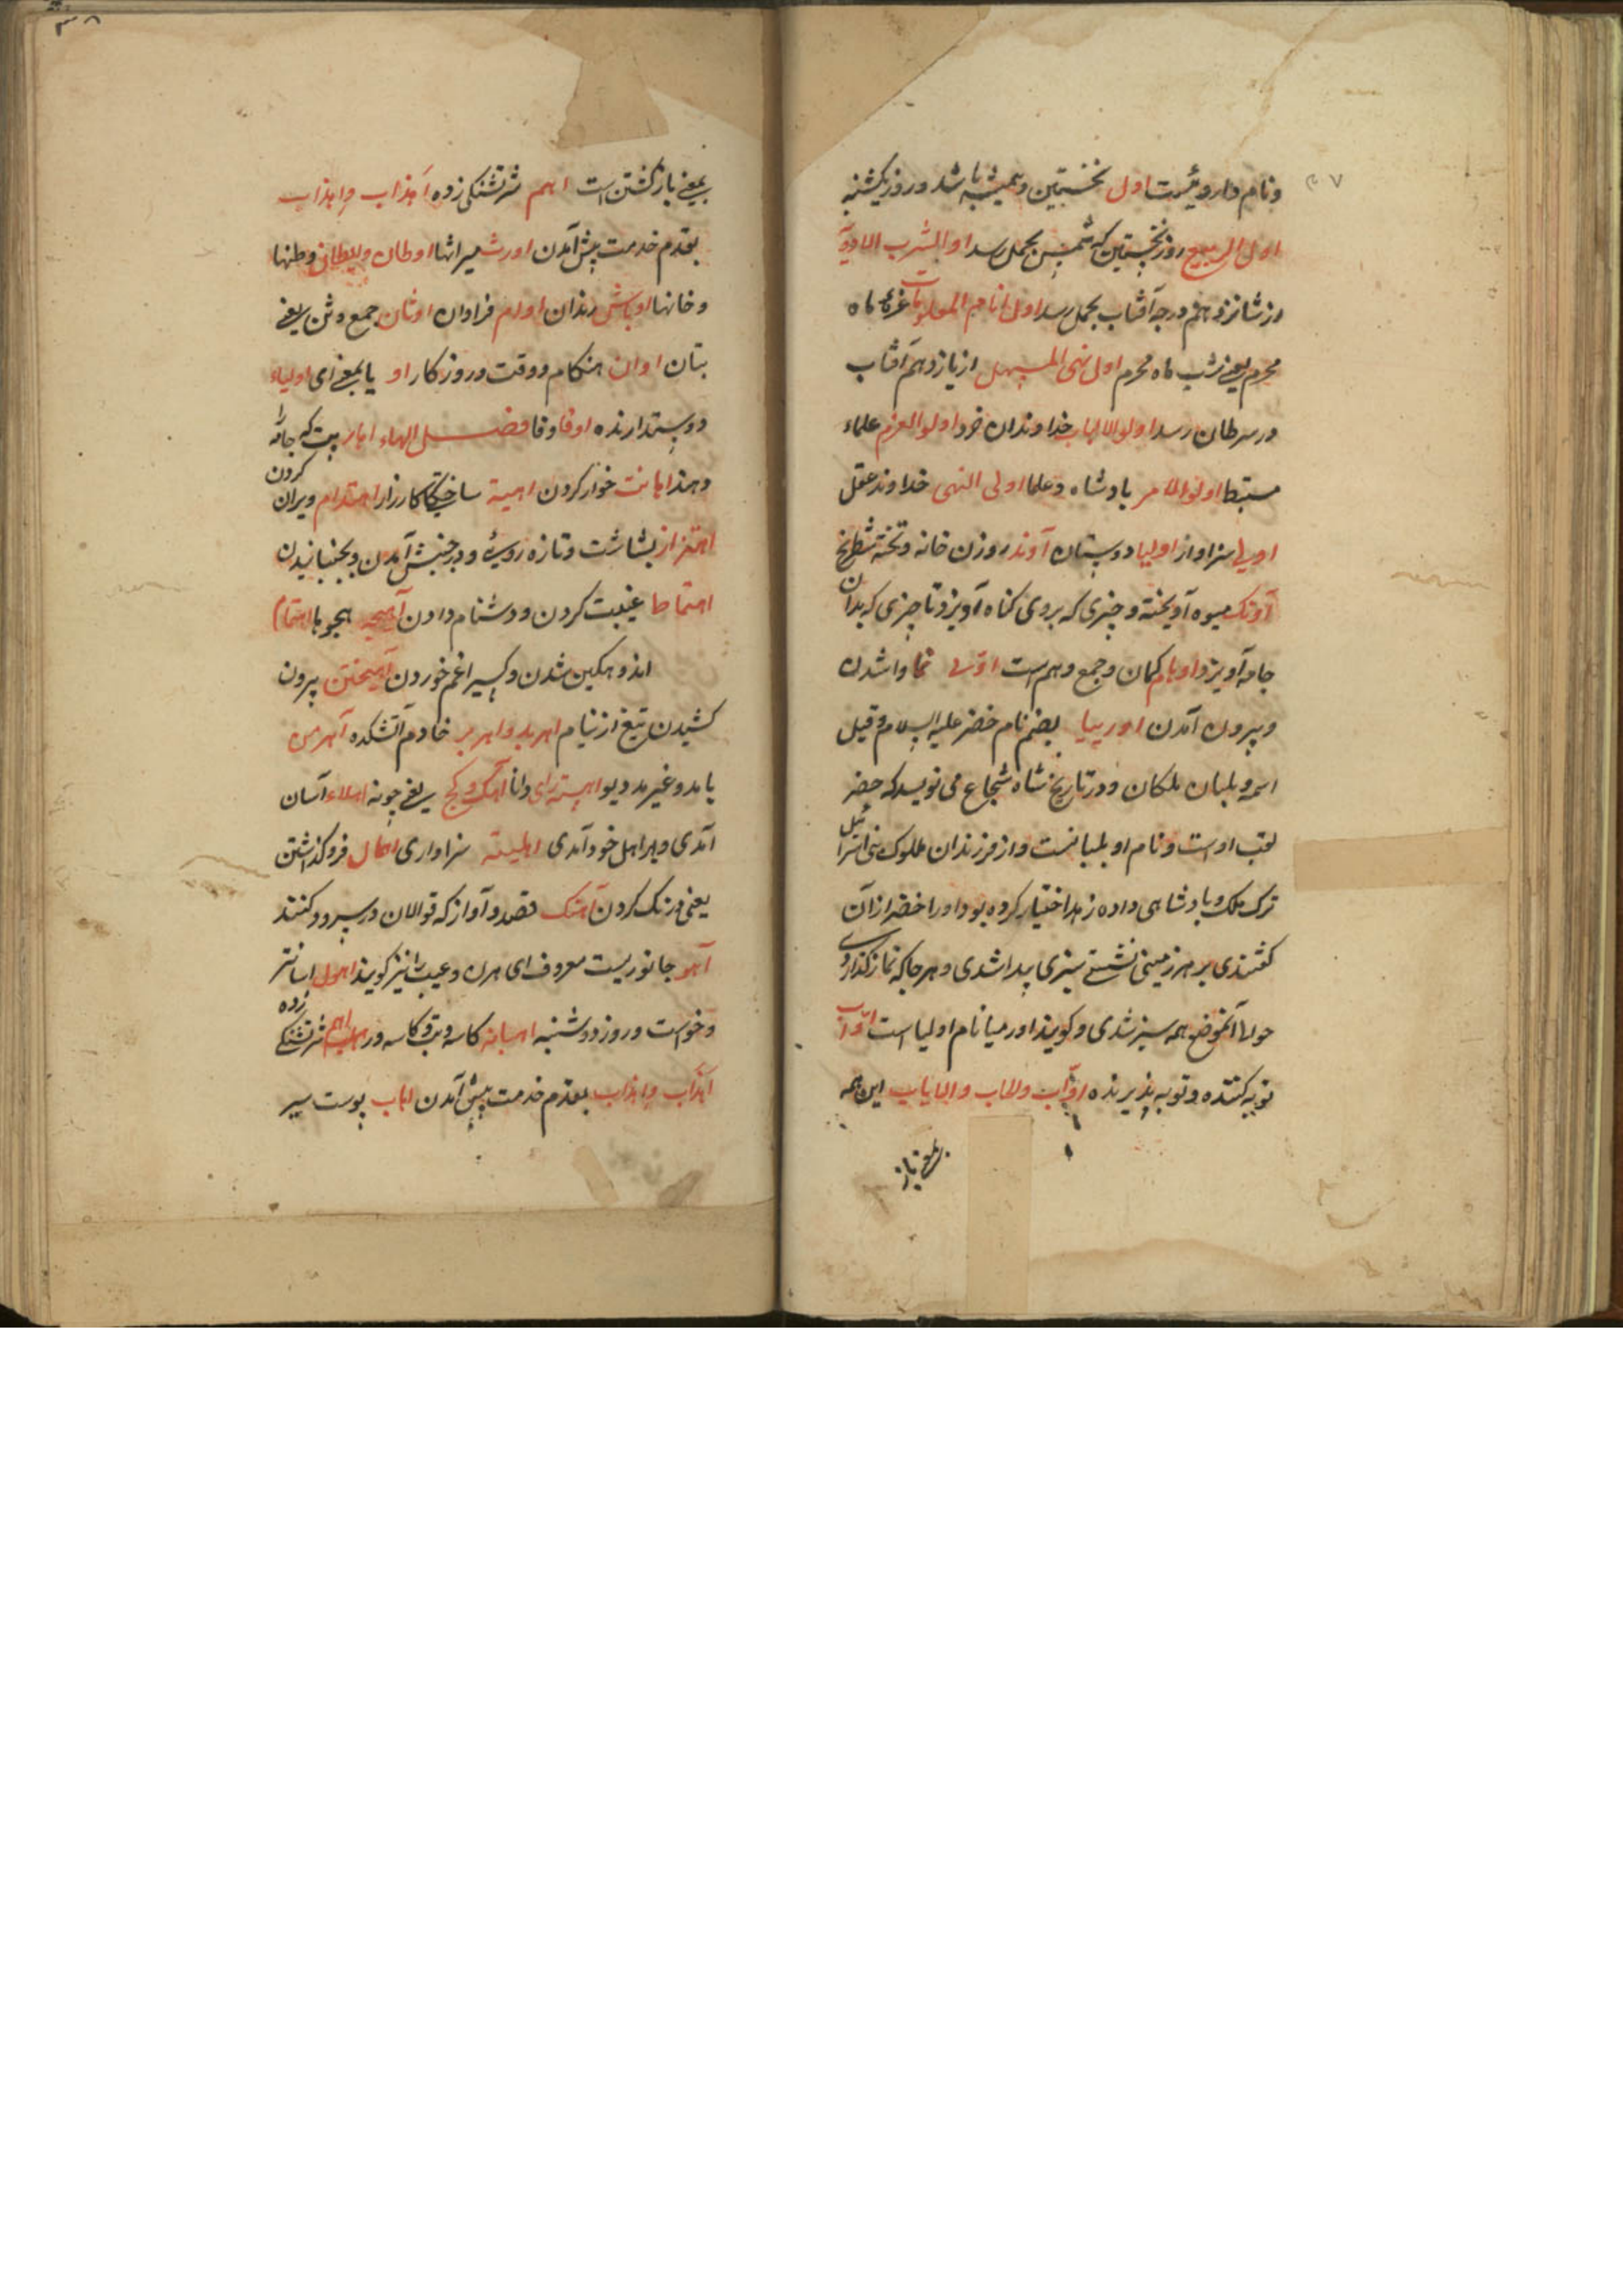 ۳۷
ونام داروئیست اول نخستین وهمیشه باشد وروز یکشنبه
اول الربیع روز نخستین که شمس بحمل رسد اول شرب الادویة
از شانزدهم درجه آفتاب بحمل رسد اول ایام المعلومات غرهٔ ماه
محرم یعنی شب ماه محرم اول نهی المسهل از یازدهم آفتاب
در سرطان رسد اولوالالباب خداوندان خرد اولوالعزم علماء
مستبط اولوالامر پادشاه وعلما اولی النهی خداوند عقل
اولی سزاوار اولیا دوستان آوند روزن خانه وتخته شطرنج
آونک میوه آویخته وچیزی که بروی کناه آویزد تا چیزی که بدان
جامه آویزد اوهام کمان وجمع وهم است نما واشدن
وبیرون آمدن اوریا بضم نام خضر علیه السلام وقیل
اسمه وبلیان ملکان ودر تاریخ شاه شجاع می نویسد که خضر
لقب اوست ونام او بلیانست واز فرزندان ملوک بنی اسرائیل
ترک ملک وبادشاهی داده زهد اختیار کرده بود اورا خضر ازآن
کفتندی بر هرزمینی نشستی سبزی پیدا شدی وهرجا که نماز کذاردی
حوالی آنموضع همه سبز شدی وکویند اورمیا نام اولیا است اواب
توبه کننده وتوبه پذیرنده اواب والماب والایاب این همه
بمعنی باز
۳۸
بمعنی بازکشتن است اهیم شتر تشنکی زده اهذاب واهذاب
بقدم خدمت پیش آمدن اورث میراثها اوطان والیطان وطنها
وخانها اوباش رندان اورام فراوان اوثان جمع وثن یعنی
بتان اوان هنکام ووقت وروزکار او یا بمعنی ای اولیاء
دوستدارنده اوفا وفا فصل الهاء اهاب پوست که جامه
وهذا اهانت خوار کردن اهبة ساختکی کارزار اهتدام ویران کردن
اهتزاز بشاشت وتازه روئی ودر جنبش آمدن وبجنبانیدن
اهتماط غیبت کردن ودشنام دادن آهیجه هجوها اهتمام
اندوهکین شدن وکسیرا غم خوردن آهیختن بیرون
کشیدن تیغ از نیام اهربد واهربر خادم آتشکده آهرمن
یا مدوغیر مد دیو اهسته رای دانا آهک وکج یعنی چونه اهلا آسان
آمدی وبر اهل خود آمدی اهلیته سزاواری اهمال فروکذاشتن
یعنی درنک کردن آهنک قصد وآواز که قوالان در سرود کنند
آهو جانوریست معروف ای هرن وعیب را نیز کویند اهول اسانتر
وخواست وروز دوشنبه اهبانه کاسه اهیم شتر تشنکی زده
اهذاب واهذاب بقدم خدمت پیش آمدن اهاب پوست سیر